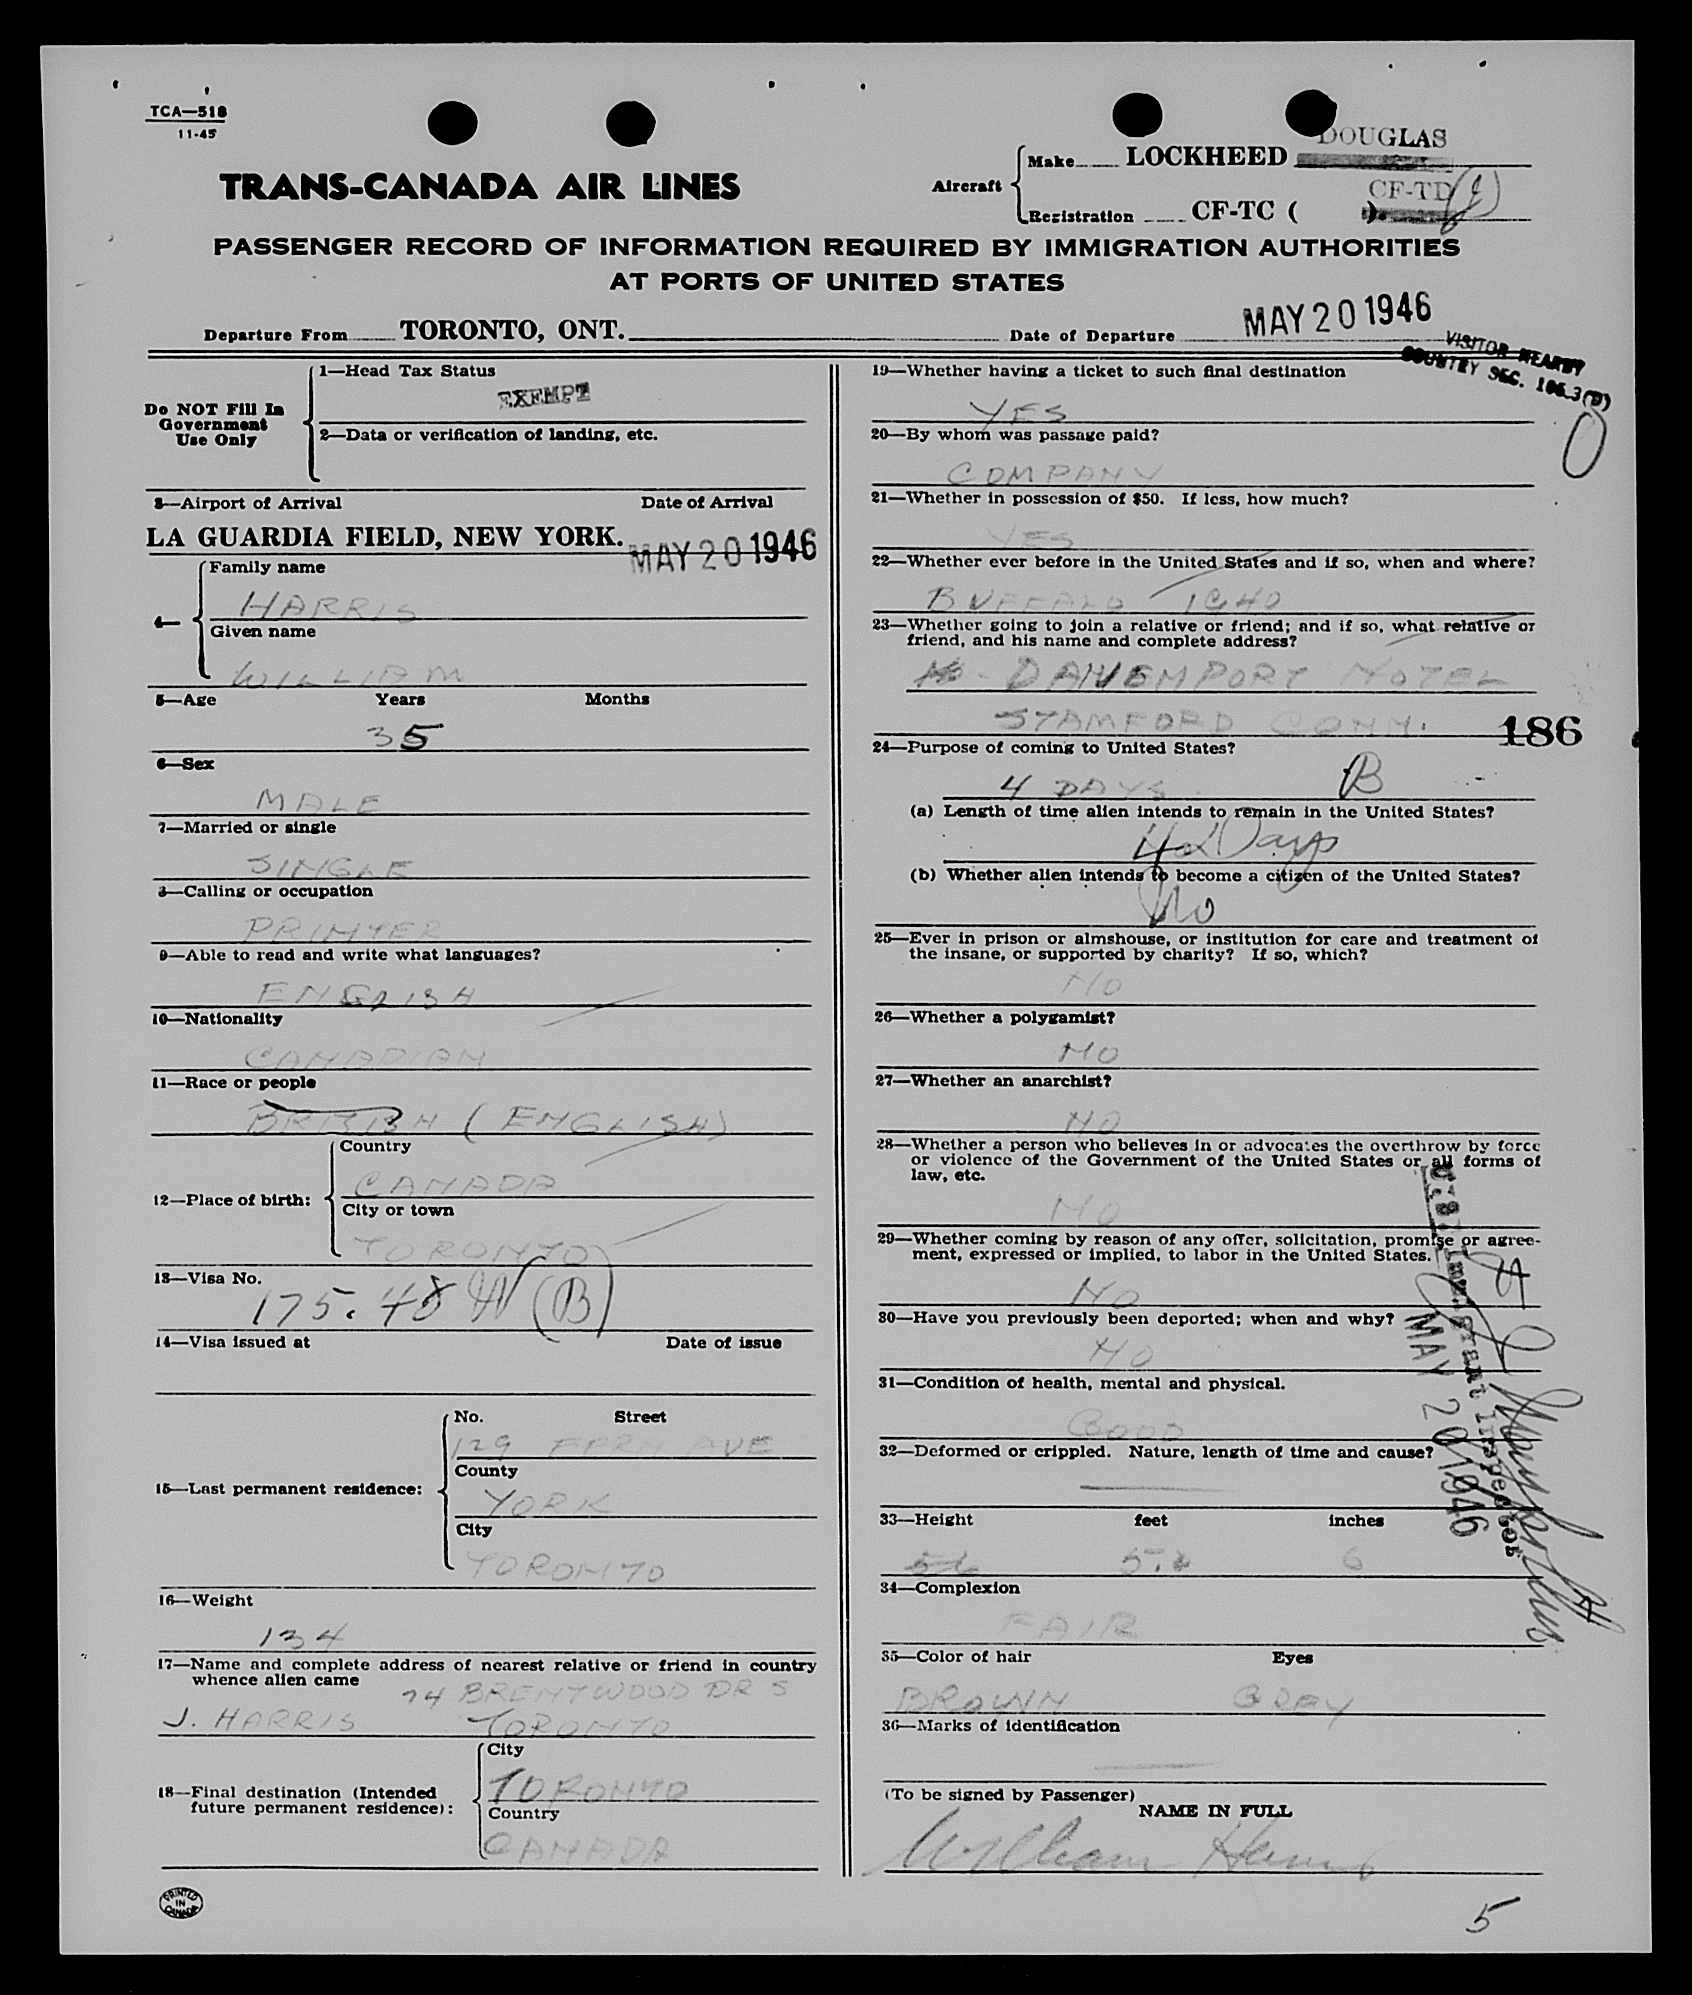 TCA—518
11-45
TRANS-CANADA AIR LINES
Aircraft
Make LOCKHEED DOUGLAS
Registration CF-TC ( ). CF-TD
PASSENGER RECORD OF INFORMATION REQUIRED BY IMMIGRATION AUTHORITIES
AT PORTS OF UNITED STATES
Departure From TORONTO, ONT. Date of Departure MAY 20 1946
VISITOR NEARBY
COUNTRY SEC. 186.3(D)
Do NOT Fill In
Government
Use Only
1—Head Tax Status
EXEMPT
2—Data or verification of landing, etc.
3—Airport of Arrival Date of Arrival
LA GUARDIA FIELD, NEW YORK. MAY 20 1946
4—
Family name
HARRIS
Given name
WILLIAM
5—Age Years Months
35
6—Sex
MALE
7—Married or single
SINGLE
8—Calling or occupation
PRINTER
9—Able to read and write what languages?
ENGLISH
10—Nationality
CANADIAN
11—Race or people
BRITISH (ENGLISH)
12—Place of birth:
Country
CANADA
City or town
TORONTO
13—Visa No.
175.48 W (B)
14—Visa issued at Date of issue
15—Last permanent residence:
No. Street
129 FERN AVE
County
YORK
City
TORONTO
16—Weight
134
17—Name and complete address of nearest relative or friend in country
whence alien came
74 BRENTWOOD DR S
J. HARRIS TORONTO
18—Final destination (Intended
future permanent residence):
City
TORONTO
Country
CANADA
PRINTED
IN
CANADA
19—Whether having a ticket to such final destination
YES
0
20—By whom was passage paid?
COMPANY
21—Whether in possession of $50. If less, how much?
YES
22—Whether ever before in the United States and if so, when and where?
BUFFALO 1940
23—Whether going to join a relative or friend; and if so, what relative or
friend, and his name and complete address?
DAVENPORT HOTEL
STAMFORD CONN. 186
24—Purpose of coming to United States?
4 DAYS. B
(a) Length of time alien intends to remain in the United States?
4 Days
(b) Whether alien intends to become a citizen of the United States?
No
25—Ever in prison or almshouse, or institution for care and treatment of
the insane, or supported by charity? If so, which?
NO
26—Whether a polygamist?
NO
27—Whether an anarchist?
NO
28—Whether a person who believes in or advocates the overthrow by force
or violence of the Government of the United States or all forms of
law, etc.
NO
29—Whether coming by reason of any offer, solicitation, promise or agree-
ment, expressed or implied, to labor in the United States.
NO
30—Have you previously been deported; when and why?
NO
31—Condition of health, mental and physical.
GOOD
32—Deformed or crippled. Nature, length of time and cause?
U.S. Immigrant Inspector
MAY 20 1946
33—Height feet inches
56 5. 6
34—Complexion
FAIR
35—Color of hair Eyes
BROWN GREY
36—Marks of identification
(To be signed by Passenger)
NAME IN FULL
William Harris
5